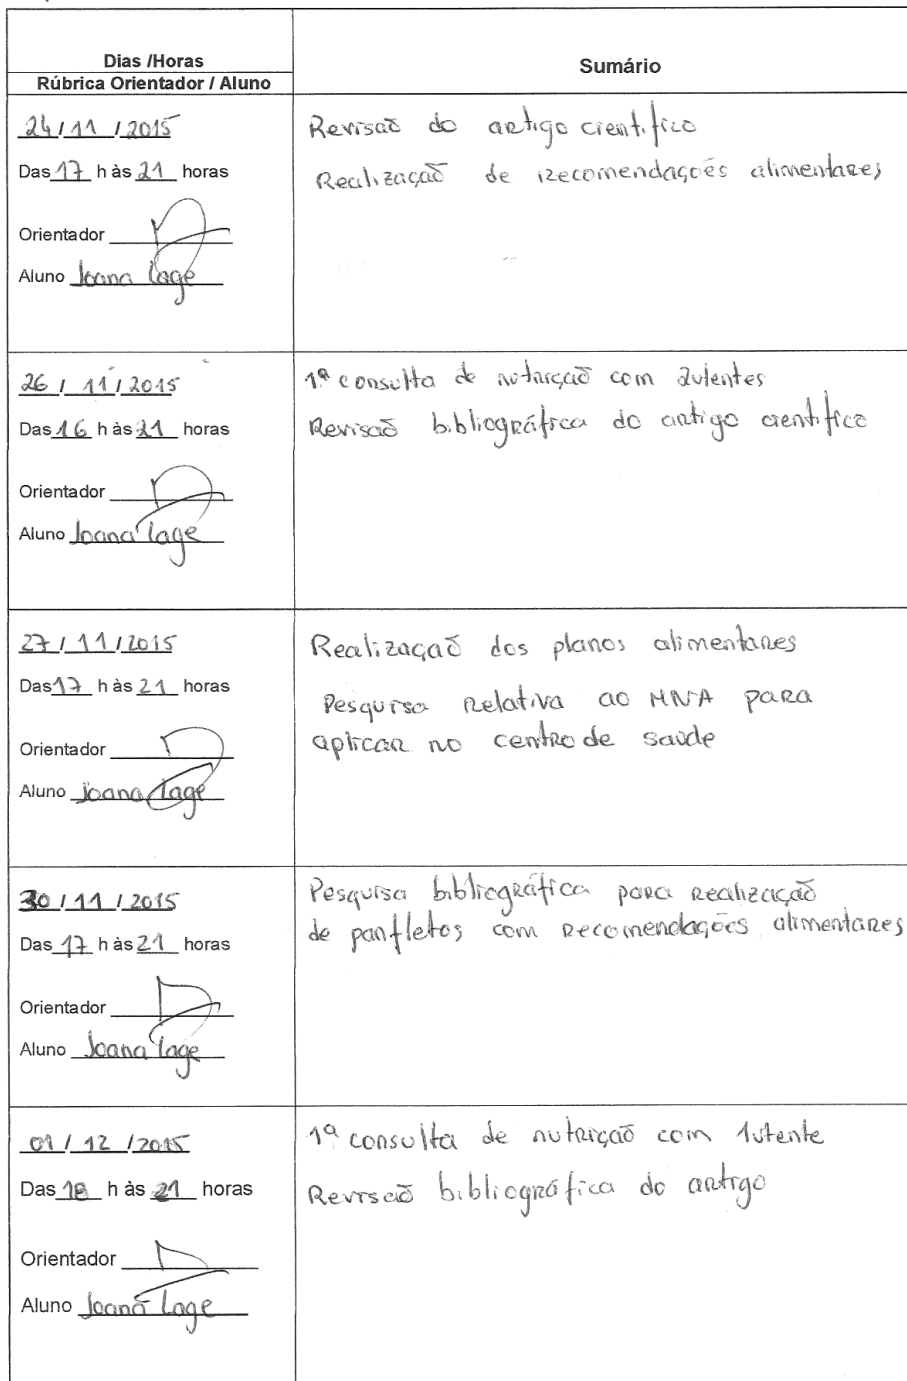 Dias /Horas
Rúbrica Orientador / Aluno
Sumário
24 / 11 / 2015
Das 17 h às 21 horas
Orientador
Aluno Joana Lage
Revisão do artigo cientifico
Realização de recomendações alimentares
26 / 11 / 2015
Das 16 h às 21 horas
Orientador
Aluno Joana Lage
1ª consulta de nutrição com 2utentes
Revisão bibliográfica do artigo cientifico
27 / 11 / 2015
Das 17 h às 21 horas
Orientador
Aluno Joana Lage
Realização dos planos alimentares
Pesquisa relativa ao MNA para
aplicar no centro de saúde
30 / 11 / 2015
Das 17 h às 21 horas
Orientador
Aluno Joana Lage
Pesquisa bibliográfica para realização
de panfletos com recomendações alimentares
01 / 12 / 2015
Das 18 h às 21 horas
Orientador
Aluno Joana Lage
1ª consulta de nutrição com 1utente
Revisão bibliográfica do artigo